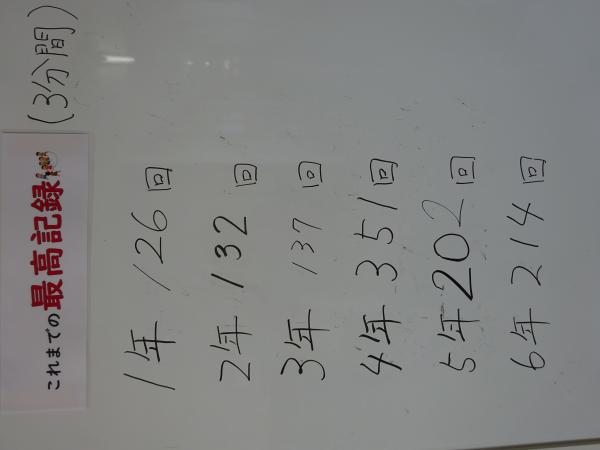 これまでの最高記録 (3分間)
1年 126回
2年 132回
3年 137回
4年 351回
5年 202回
6年 214回